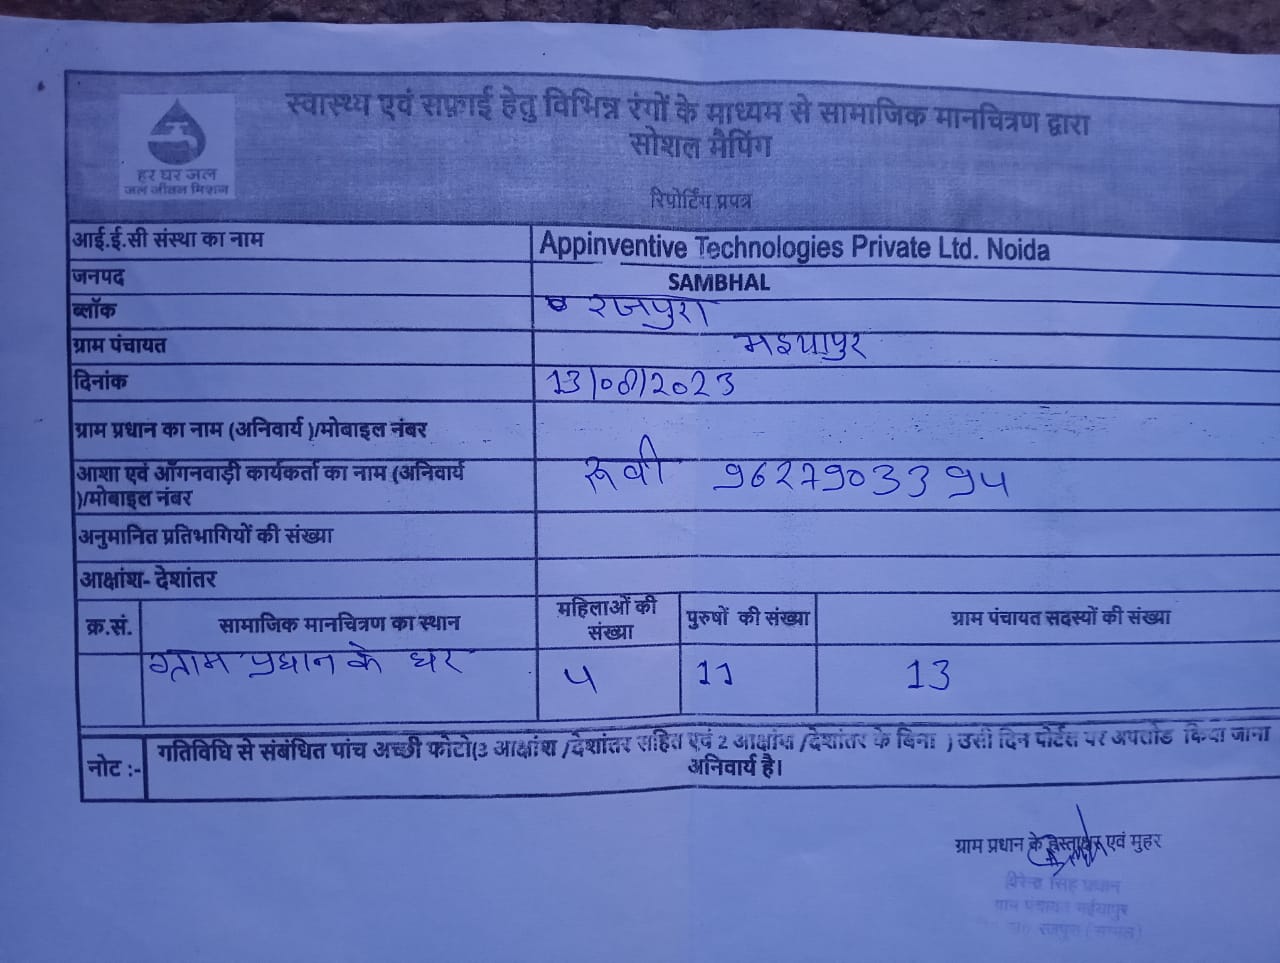 हर घर जल
जल जीवन मिशन
स्वास्थ्य एवं सफ़ाई हेतु विभिन्न रंगों के माध्यम से सामाजिक मानचित्रण द्वारा
सोशल मैपिंग
रिपोर्टिंग प्रपत्र
आई.ई.सी संस्था का नाम Appinventive Technologies Private Ltd. Noida
जनपद SAMBHAL
ब्लॉक रजपुरा
ग्राम पंचायत मइयापुर
दिनांक 13/08/2023
ग्राम प्रधान का नाम (अनिवार्य )/मोबाइल नंबर
आशा एवं आँगनवाड़ी कार्यकर्ता का नाम (अनिवार्य
)/मोबाइल नंबर रूवी 9627903394
अनुमानित प्रतिभागियों की संख्या
आक्षांश- देशांतर
क्र.सं. सामाजिक मानचित्रण का स्थान महिलाओं की संख्या पुरुषों की संख्या ग्राम पंचायत सदस्यों की संख्या
ग्राम प्रधान के घर 4 11 13
नोट :- गतिविधि से संबंधित पांच अच्छी फोटो(3 आक्षांश /देशांतर सहित एवं 2 आक्षांश /देशांतर के बिना ) उसी दिन पोर्टल पर अपलोड किया जाना
अनिवार्य है।
ग्राम प्रधान के हस्ताक्षर एवं मुहर
विरेन्द्र सिंह प्रधान
ग्राम पंचायत मईयापुर
रजपुरा (सम्भल)